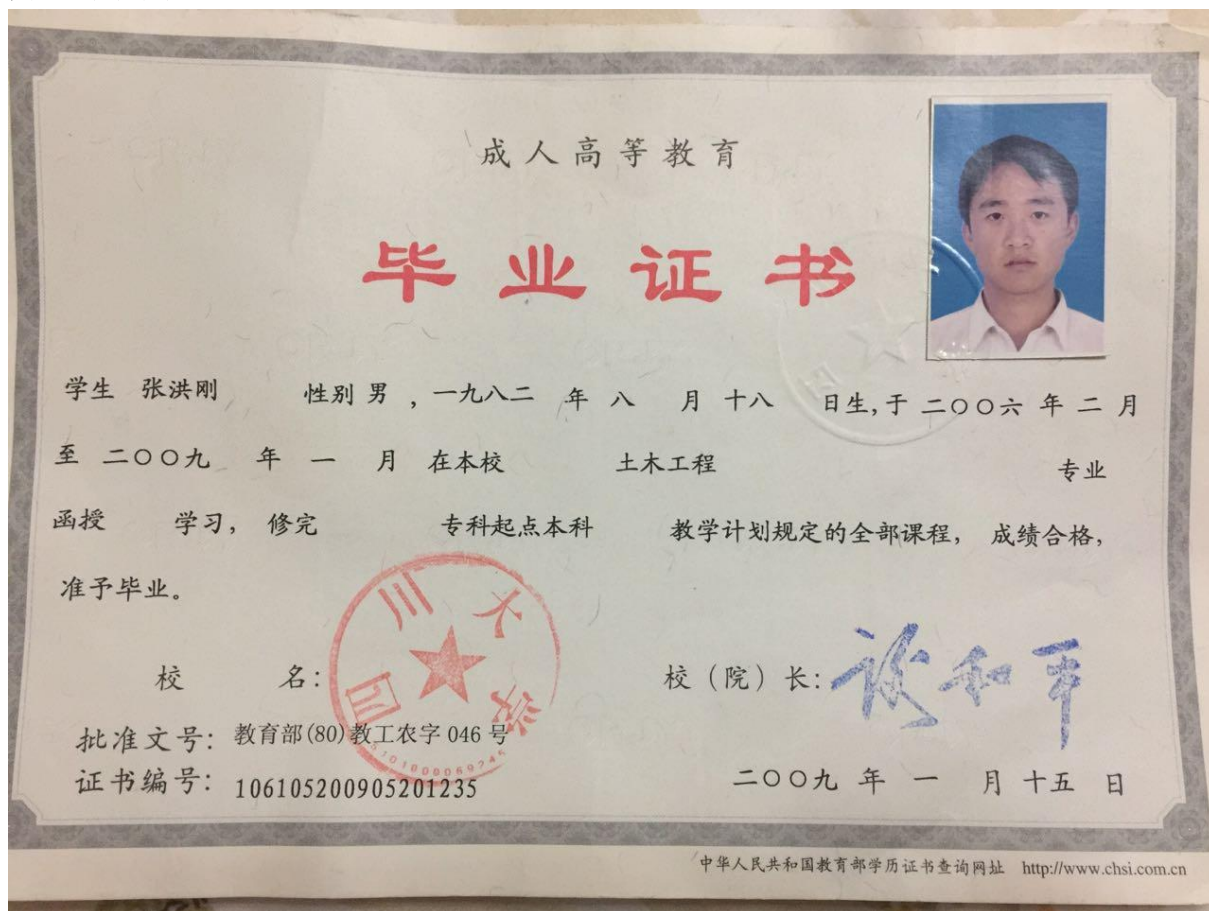 成人高等教育
毕业证书
学生 张洪刚 性别 男 , 一九八二 年 八 月 十八 日生, 于 二〇〇六 年 二 月
至 二〇〇九 年 一 月 在本校 土木工程 专业
函授 学习, 修完 专科起点本科 教学计划规定的全部课程, 成绩合格,
准予毕业。
校 名: 四川大学
校（院）长: 谢和平
批准文号: 教育部(80)教工农字 046 号
5101000069745
证书编号: 106105200905201235
二〇〇九 年 一 月 十五 日
中华人民共和国教育部学历证书查询网址 http://www.chsi.com.cn